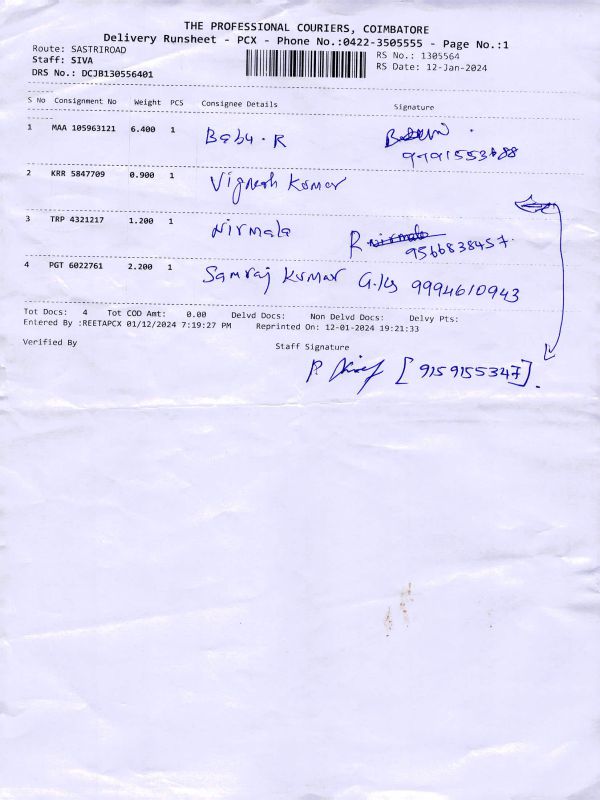 THE PROFESSIONAL COURIERS, COIMBATORE
Delivery Runsheet - PCX - Phone No.:0422-3505555 - Page No.:1
Route: SASTRIROAD
Staff: SIVA
DRS No.: DCJB130556401
RS No.: 1305564
RS Date: 12-Jan-2024
S No Consignment No Weight PCS Consignee Details Signature
1 MAA 105963121 6.400 1 Babu. R
2 KRR 5847709 0.900 1 Vignesh Kumar
3 TRP 4321217 1.200 1 Nirmala R
9566838457.
4 PGT 6022761 2.200 1 Samraj Kumar 9994610943
Tot Docs: 4 Tot COD Amt: 0.00 Delvd Docs: Non Delvd Docs: Delvy Pts:
Entered By :REETAPCX 01/12/2024 7:19:27 PM Reprinted On: 12-01-2024 19:21:33
Verified By
Staff Signature
[9159155347].